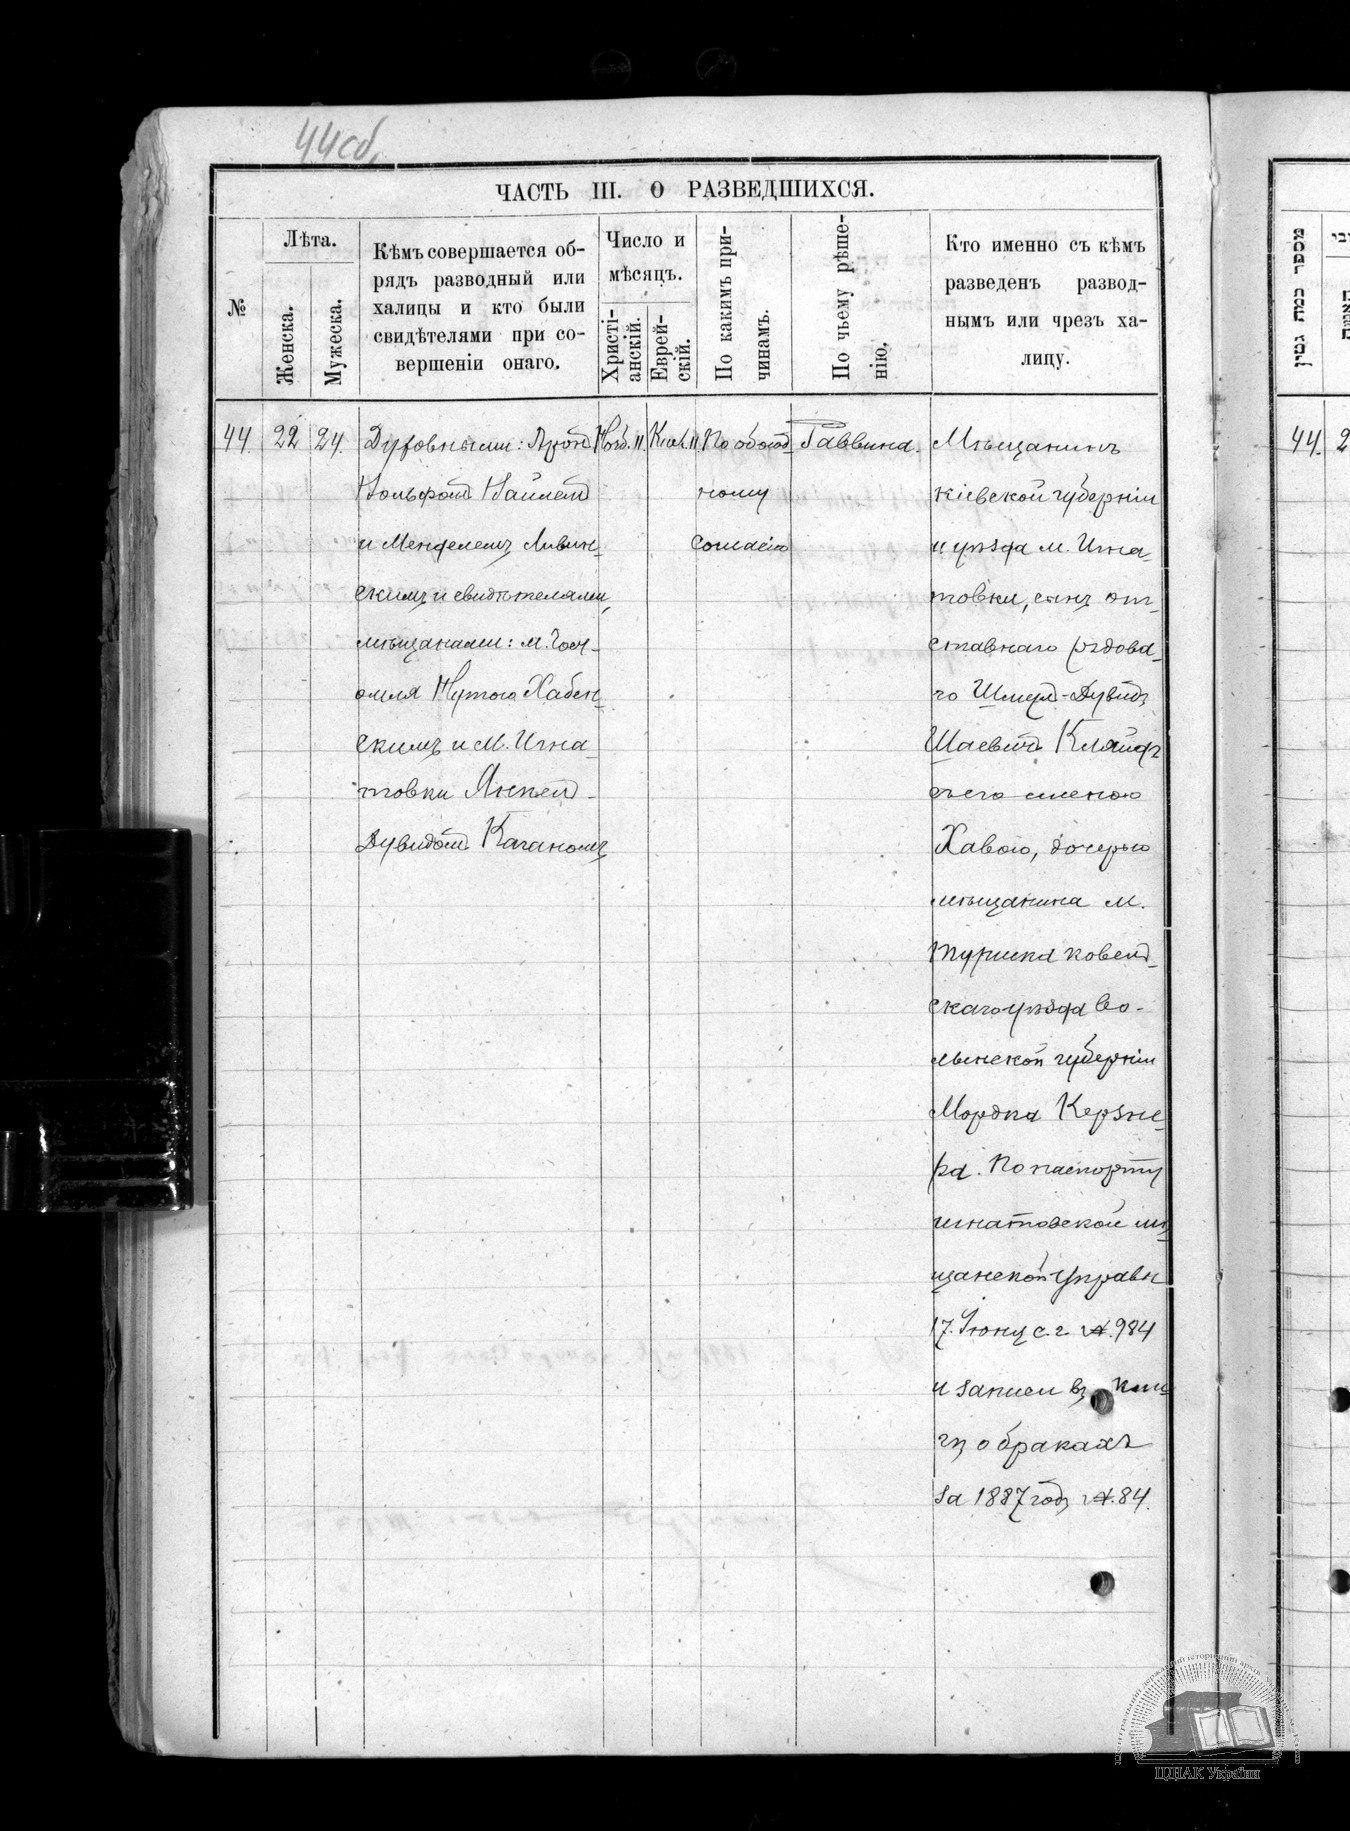 44 об.
ЧАСТЬ III. О РАЗВЕДШИХСЯ.
№
Лѣта.
Женска.
Мужеска.
Кѣмъ совершается об-
рядъ разводный или
халицы и кто были
свидѣтелями при со-
вершеніи онаго.
Число и
мѣсяцъ.
Христі-
анскій.
Еврей-
скій.
По какимъ при-
чинамъ.
По чьему рѣше-
нію.
Кто именно съ кѣмъ
разведенъ развод-
нымъ или чрезъ ха-
лицу.
44. 22 24.
Духовными: Арон
Вольфом
и Менделемъ Ливин-
скимъ и свидѣтелями,
мѣщанами: м.
Нутою Хабен-
скимъ и м. Игна-
товки Янкел-
Дувидом Каганомъ
Нояб. 11. 11
По обоюд-
ному
согласію
Раввина.
Мѣщанинъ
кіевской губерніи
и уѣзда м. Игна-
товки, сынъ от-
ставнаго рядова-
го Шмул-Дувидъ
Шаевич
съ его женою
Хавою, дочерью
мѣщанина м.
Туриска ковель-
скаго уѣзда Во-
лынской губерніи
Мордка Керзне-
ра. По паспорту
игнатовской мѣ-
щанской управы
17. Іюну с. г. №. 984
и записи въ кни-
гѣ о бракахъ
за 1887 годъ №. 84.
מספר כמה גטין
44. 2
ЦДІАК України